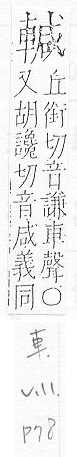 丘銜切音謙車聲○
又胡讒切音咸義同
車
V.111.